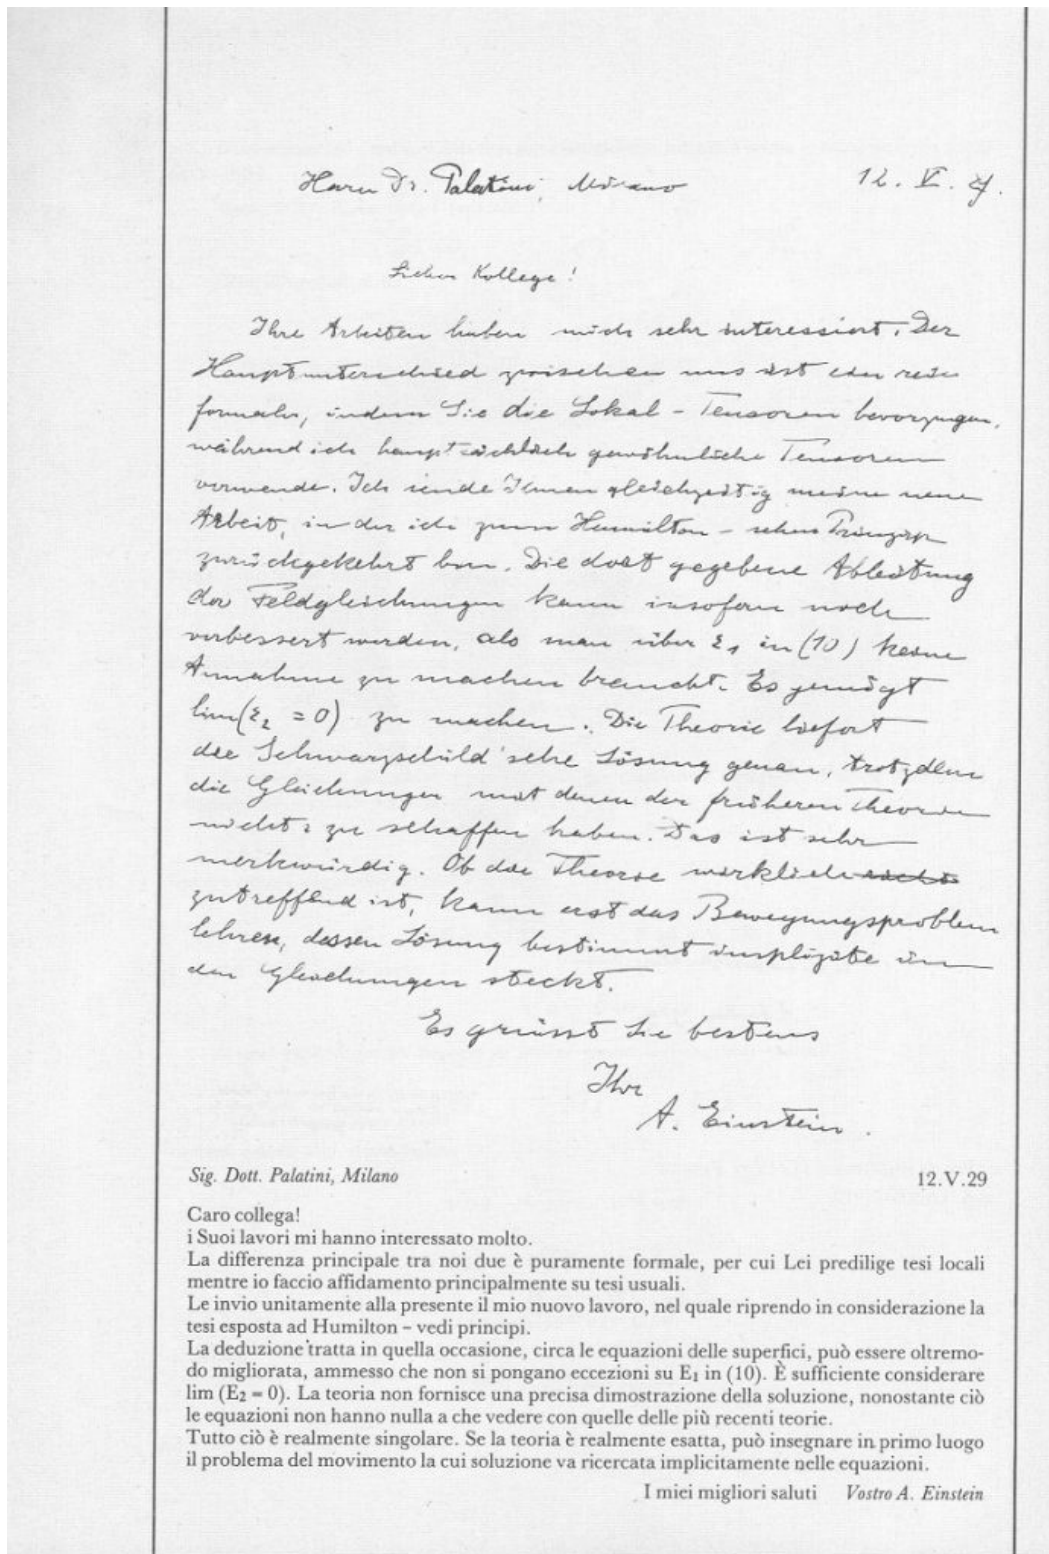 Herrn Dr. Palatini, Milano 12. V. 29.
Lieber Kollege!
Ihre Arbeiten haben mich sehr interessiert. Der
Hauptunterschied zwischen uns ist ein rein
formaler, indem Sie die Lokal-Tensoren bevorzugen,
während ich hauptsächlich gewöhnliche Tensoren
verwende. Ich sende Ihnen gleichzeitig meine neue
Arbeit, in der ich zum Hamilton-schen Prinzip
zurückgekehrt bin. Die dort gegebene Ableitung
der Feldgleichungen kann insofern noch
verbessert werden, als man über ε₁ in (10) keine
Annahme zu machen braucht. Es genügt
lim(ε₂ = 0) zu machen. Die Theorie liefert
die Schwarzschild'sche Lösung genau, trotzdem
die Gleichungen mit denen der früheren Theorie
nichts zu schaffen haben. Das ist sehr
merkwürdig. Ob die Theorie wirklich
zutreffend ist, kann erst das Bewegungsproblem
lehren, dessen Lösung bestimmt implizite in
den Gleichungen steckt.
Es grüsst Sie bestens
Ihr
A. Einstein.
Sig. Dott. Palatini, Milano 12.V.29
Caro collega!
i Suoi lavori mi hanno interessato molto.
La differenza principale tra noi due è puramente formale, per cui Lei predilige tesi locali
mentre io faccio affidamento principalmente su tesi usuali.
Le invio unitamente alla presente il mio nuovo lavoro, nel quale riprendo in considerazione la
tesi esposta ad Humilton – vedi principi.
La deduzione tratta in quella occasione, circa le equazioni delle superfici, può essere oltremo-
do migliorata, ammesso che non si pongano eccezioni su E₁ in (10). È sufficiente considerare
lim (E₂ = 0). La teoria non fornisce una precisa dimostrazione della soluzione, nonostante ciò
le equazioni non hanno nulla a che vedere con quelle delle più recenti teorie.
Tutto ciò è realmente singolare. Se la teoria è realmente esatta, può insegnare in primo luogo
il problema del movimento la cui soluzione va ricercata implicitamente nelle equazioni.
I miei migliori saluti Vostro A. Einstein